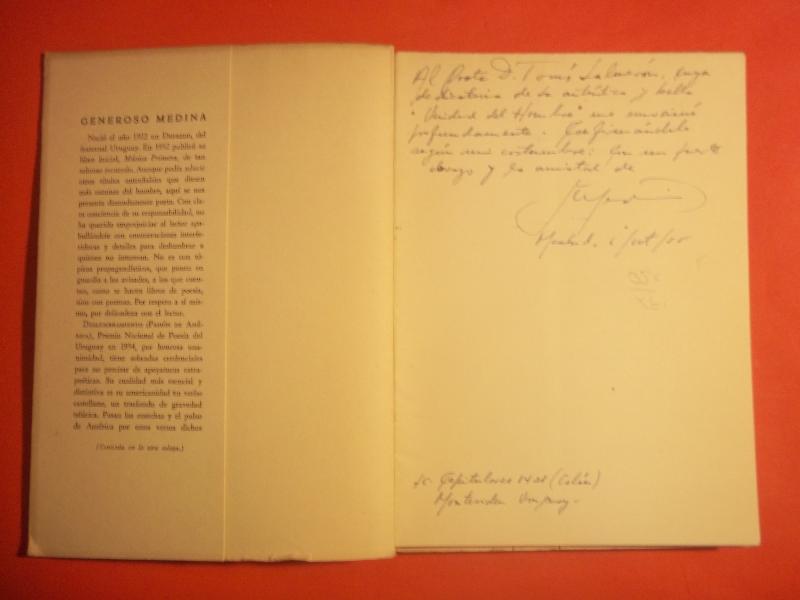 GENEROSO MEDINA
Nació el año 1922 en Durazno, del
fraternal Uruguay. En 1952 publicó su
libro inicial, Música Primera, de tan
valioso recuerdo. Aunque podía aducir
otros títulos entrañables que dicen
más razones del hombre, aquí se nos
presenta desnudamente poeta. Con cla-
ra conciencia de su responsabilidad, no
ha querido empequeñecer al lector
con enumeraciones
y detalles para deslumbrar a
quienes no interesan. No es con tó-
picos propagandísticos, que ponen en
guardia a los avisados, a los que cuen-
tan, como se hacen libros de poesía,
sino con poemas. Por respeto a sí mis-
mo, por delicadeza con el lector.
DESLUMBRAMIENTO (PASIÓN DE AMÉ-
RICA), Premio Nacional de Poesía del
Uruguay en 1954, por honrosa una-
nimidad, tiene sobradas credenciales
para no precisar de apoyaturas extra-
poéticas. Su cualidad más esencial y
distintiva es su americanidad en verbo
castellano, un trasfondo de gravedad
telúrica. Pasan las cosechas y el pulso
de América por estos versos dichos
(Continúa en la otra solapa.)
Al Poeta D. Tomás Salvador, cuya
dedicatoria de su auténtica y bella
"Unidad del Hombre" me emocionó
profundamente.
según mi costumbre: Con un fuerte
abrazo y la amistad de
Madrid,
Capitulares 1428 (Colón)
Montevideo Uruguay-